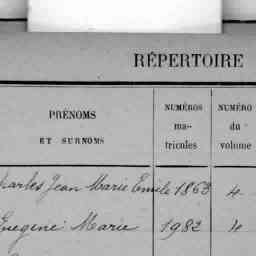 RÉPERTOIRE
PRÉNOMS
ET SURNOMS
NUMÉROS
ma-
tricules
NUMÉRO
du
volume
Charles Jean Marie Emile 1863 4
Eugene Marie 1982 4